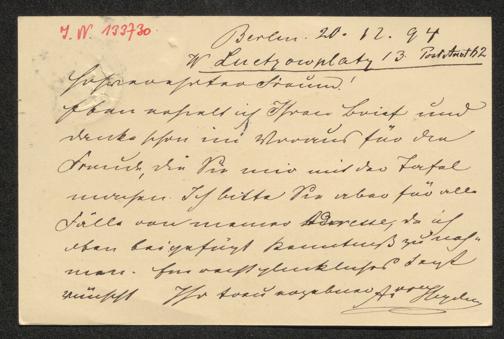 J. N. 133730
Berlin. 20. 12. 94
W Luetzowplatz 13 Post Amt 62
Hochverehrter Freund!
Eben erhielt ich Ihren Brief und
danke schon im Voraus für die
Freude, die Sie mir mit der Tafel
machen. Ich bitte Sie aber für alle
Fälle von meiner Adresse, die ich
oben beigefügt Kenntniß zu neh-
men. Ein recht glückliches Fest
wünscht Ihr treu ergebener A. von Heyden